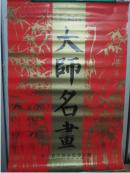 大師名畫